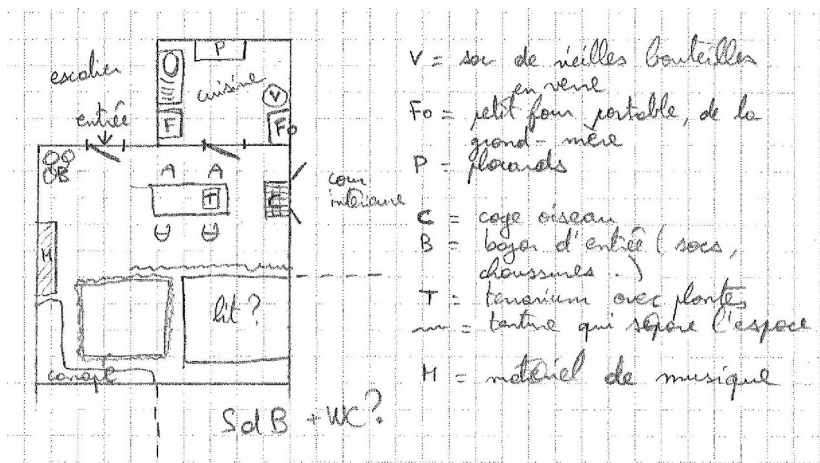 escalier
entrée
P
cuisine
V
F
Fo
B
A A
T
C
cour
intérieure
M
lit ?
canapé
SdB + WC ?
V = sac de vieilles bouteilles
en verre
Fo = petit four portable, de la
grand-mère
P = placards
C = cage oiseau
B = bazar d'entrée ( sacs,
chaussures.. )
T = terrarium avec plantes
= tenture qui sépare l'espace
M = matériel de musique